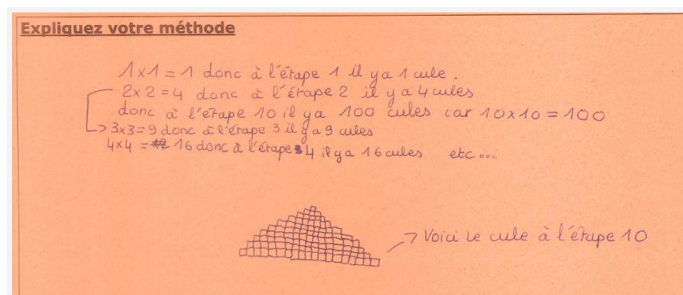 Expliquez votre méthode
1x1 = 1 donc à l'étape 1 il y a 1 cule.
2x2 = 4 donc à l'étape 2 il y a 4 cules
donc à l'étape 10 il y a 100 cules car 10x10 = 100
3x3 = 9 donc à l'étape 3 il y a 9 cules
4x4 = 16 donc à l'étape 4 il y a 16 cules etc ...
Voici le cule à l'étape 10